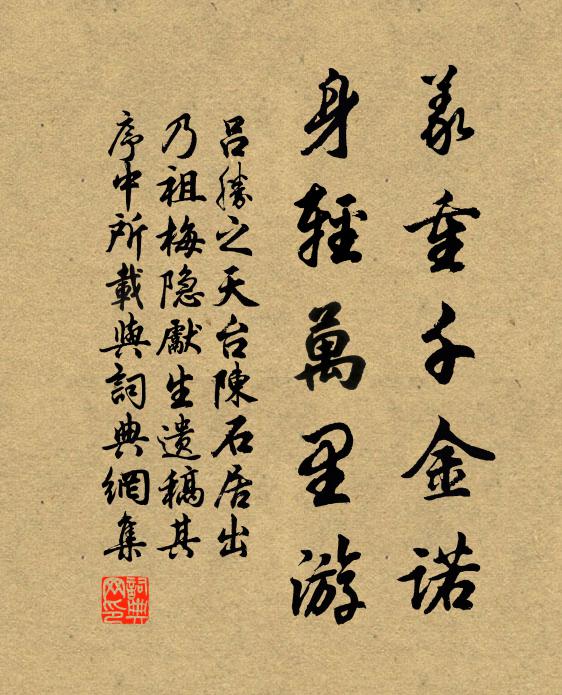 義重千金諾
身輕萬里游
呂勝之天台陳石居出
乃祖梅隐獻生遗稿其
序中所載與詞典網集
詞典网印